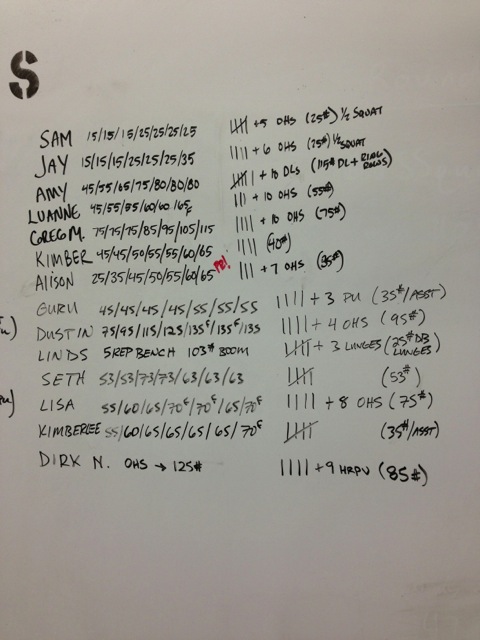 S
SAM 15/15/15/25/25/25/25 |||| +5 OHS (25#) 1/2 SQUAT
JAY 15/15/15/25/25/25/35 |||| +6 OHS (25#) 1/2 SQUAT
AMY 45/55/65/75/80/80/80 |||| +10 DLS (115# DL + RING ROWS)
LUANNE 45/55/55/60/60/65F ||| +10 OHS (55#)
GREG M. 75/75/75/85/95/105/115 |||| +10 OHS (75#)
KIMBER 45/45/50/55/55/60/65 |||| (40#)
ALISON 25/35/45/50/55/60/65 PR! ||| +7 OHS (35#)
GURU 45/45/45/45/55/55/55 |||| +3 PU (35#/ASST)
DUSTIN 75/95/115/125/135F/135F/135 |||| +4 OHS (95#)
LINDS 5 REP BENCH 103# BOOM |||| +3 LUNGES (25# DB LUNGES)
SETH 53/53/73/73/63/63/63 |||| (53#)
LISA 55/60/65/70F/70F/65/70F |||| +8 OHS (75#)
KIMBERLEE 55/60/65/65/65/65/70F |||| (35#/ASST)
DIRK N. OHS → 125# |||| +9 HRPU (85#)